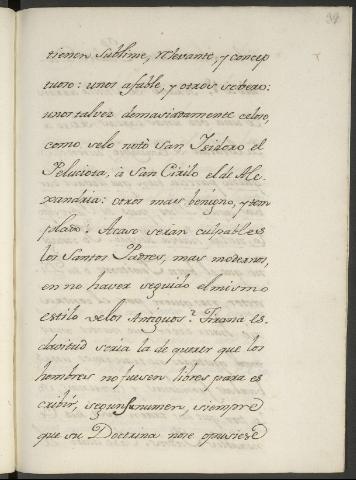 39
tienen sublime, relevante, y concep
tuoso: unos afable, y otros sebero:
unos talvez demasiadamente celoso,
como selo notò San Isidoro el
Peluciota, à San Cirilo el de Ale
xandria: otros mas benigno, y tem
plado. Acaso serian culpables
los Santos Padres, mas modernos,
en no haver seguido el mismo
estilo delos Antiguos? Tirana es
clavitud seria la de querer que los
hombres no fuesen libres para es
cribir, segun su numen, siempre
que su Doctrina no se opusiese